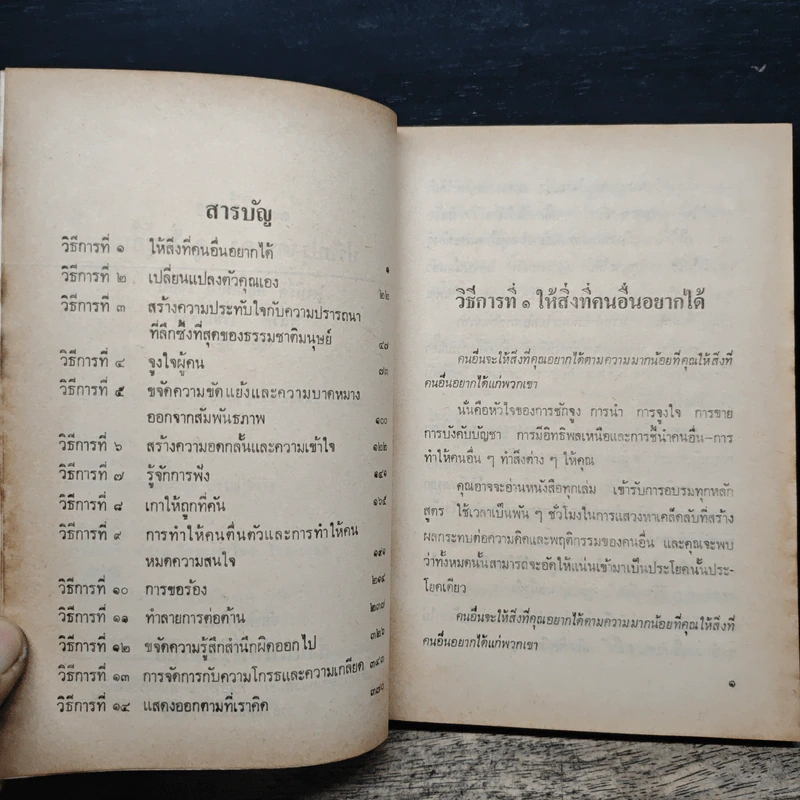 สารบัญ
วิธีการที่ ๑ ให้สิ่งที่คนอื่นอยากได้ ๑
วิธีการที่ ๒ เปลี่ยนแปลงตัวคุณเอง ๒๒
วิธีการที่ ๓ สร้างความประทับใจกับความปรารถนา
ที่ลึกซึ้งที่สุดของธรรมชาติมนุษย์ ๔๗
วิธีการที่ ๔ จูงใจผู้คน ๗๓
วิธีการที่ ๕ ขจัดความขัดแย้งและความบาดหมาง
ออกจากสัมพันธภาพ ๑๐๐
วิธีการที่ ๖ สร้างความอดกลั้นและความเข้าใจ ๑๒๒
วิธีการที่ ๗ รู้จักการฟัง ๑๔๑
วิธีการที่ ๘ เกาให้ถูกที่คัน ๑๖๕
วิธีการที่ ๙ การทำให้คนตื่นตัวและการทำให้คน
หมดความสนใจ ๑๙๑
วิธีการที่ ๑๐ การขอร้อง ๒๑๔
วิธีการที่ ๑๑ ทำลายการต่อต้าน ๒๓๗
วิธีการที่ ๑๒ ขจัดความรู้สึกสำนึกผิดออกไป ๓๒๖
วิธีการที่ ๑๓ การจัดการกับความโกรธและความเกลียด ๓๔๓
วิธีการที่ ๑๔ แสดงออกตามที่เราคิด ๓๗๐
วิธีการที่ ๑ ให้สิ่งที่คนอื่นอยากได้
คนอื่นจะให้สิ่งที่คุณอยากได้ตามความมากน้อยที่คุณให้สิ่งที่
คนอื่นอยากได้แก่พวกเขา
นั่นคือหัวใจของการชักจูง การนำ การจูงใจ การขาย
การบังคับบัญชา การมีอิทธิพลเหนือและการชี้นำคนอื่น–การ
ทำให้คนอื่น ๆ ทำสิ่งต่าง ๆ ให้คุณ
คุณอาจจะอ่านหนังสือทุกเล่ม เข้ารับการอบรมทุกหลัก
สูตร ใช้เวลาเป็นพัน ๆ ชั่วโมงในการแสวงหาเคล็ดลับที่สร้าง
ผลกระทบต่อความคิดและพฤติกรรมของคนอื่น และคุณจะพบ
ว่าทั้งหมดนั้นสามารถจะอัดให้แน่นเข้ามาเป็นประโยคนั้นประ-
โยคเดียว
คนอื่นจะให้สิ่งที่คุณอยากได้ตามความมากน้อยที่คุณให้สิ่งที่
คนอื่นอยากได้แก่พวกเขา
๑